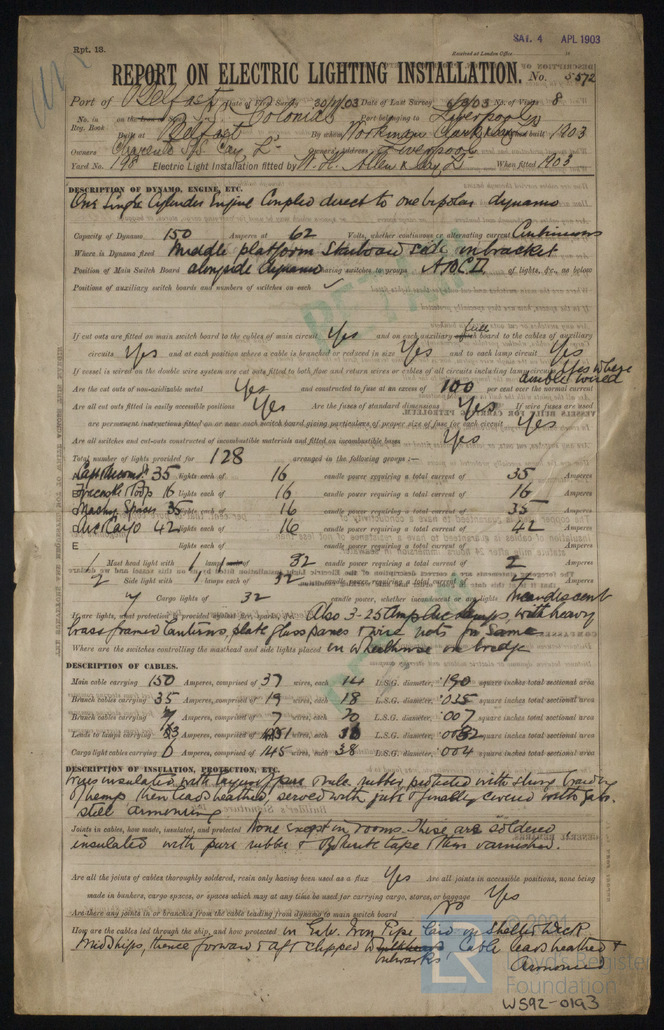 Rpt. 13.
SAT. 4 APL 1903
Received at London Office
REPORT ON ELECTRIC LIGHTING INSTALLATION. No. 5572
Port of Belfast Date of First Survey 30/1/03 Date of Last Survey 6/3/03 No. of Visits 8
No. in Reg. Book on the Colonial Port belonging to Liverpool
Built at Belfast By whom Workman Clark & Coy Ld When built 1903
Owners Charente S/S Coy Ld Owners' Address Liverpool
Yard No. 198 Electric Light Installation fitted by W. H. Allen & Coy Ld When fitted 1903
DESCRIPTION OF DYNAMO, ENGINE, ETC.
One Single Cylinder Engine Coupled direct to one bipolar dynamo
Capacity of Dynamo 150 Amperes at 62 Volts, whether continuous or alternating current Continuous
Where is Dynamo fixed Middle platform Starboard side in bracket
Position of Main Switch Board alongside dynamo having switches to groups A B C D of lights, &c., as below
Positions of auxiliary switch boards and numbers of switches on each
If cut outs are fitted on main switch board to the cables of main circuit Yes and on each auxiliary switch board to the cables of auxiliary
circuits Yes and at each position where a cable is branched or reduced in size Yes and to each lamp circuit Yes
If vessel is wired on the double wire system are cut outs fitted to both flow and return wires or cables of all circuits including lamp circuits Yes where
double wired
Are the cut outs of non-oxidizable metal Yes and constructed to fuse at an excess of 100 per cent over the normal current
Are all cut outs fitted in easily accessible positions Yes Are the fuses of standard dimensions Yes If wire fuses are used
are permanent instructions fitted on or near each switch board giving particulars of proper size of fuse for each circuit Yes
Are all switches and cut-outs constructed of incombustible materials and fitted on incombustible bases Yes
Total number of lights provided for 128 arranged in the following groups :—
35 lights each of 16 candle power requiring a total current of 35 Amperes
16 lights each of 16 candle power requiring a total current of 16 Amperes
35 lights each of 16 candle power requiring a total current of 35 Amperes
42 lights each of 16 candle power requiring a total current of 42 Amperes
E lights each of candle power requiring a total current of Amperes
1 Mast head light with 1 lamp of 32 candle power requiring a total current of 2 Amperes
2 Side light with 1 lamps each of 32 candle power requiring a total current of 4 Amperes
7 Cargo lights of 32 candle power, whether incandescent or arc lights Incandescent
If arc lights, what protection is provided against fire, sparks, &c. Also 3-25 Amp Arc lamps, with heavy
brass framed lanterns, plate glass panes & wire nets for same
Where are the switches controlling the masthead and side lights placed in wheelhouse on bridge
DESCRIPTION OF CABLES.
Main cable carrying 150 Amperes, comprised of 37 wires, each 14 L.S.G. diameter, .190 square inches total sectional area
Branch cables carrying 35 Amperes, comprised of 19 wires, each 18 L.S.G. diameter, .035 square inches total sectional area
Branch cables carrying 7 Amperes, comprised of 7 wires, each 20 L.S.G. diameter, .007 square inches total sectional area
Leads to lamps carrying Amperes, comprised of wires, each L.S.G. diameter, square inches total sectional area
Cargo light cables carrying 6 Amperes, comprised of 145 wires, each 38 L.S.G. diameter, .004 square inches total sectional area
DESCRIPTION OF INSULATION, PROTECTION, ETC.
Wires insulated with layers of pure & vulc. rubber, protected with strong braiding
of hemp, then lead sheathed, served with jute & finally covered with galv.
steel armouring
Joints in cables, how made, insulated, and protected None except in rooms. These are soldered,
insulated with pure rubber & Okonite tape & then varnished.
Are all the joints of cables thoroughly soldered, resin only having been used as a flux Yes Are all joints in accessible positions, none being
made in bunkers, cargo spaces, or spaces which may at any time be used for carrying cargo, stores, or baggage Yes
Are there any joints in or branches from the cable leading from dynamo to main switch board No
How are the cables led through the ship, and how protected in Galv. Iron Pipe laid on Shelter Deck
Midships, thence forward & aft clipped to bulwarks. Cable lead sheathed &
Armoured
© 2021
Lloyd's Register
Foundation
WS92-0193